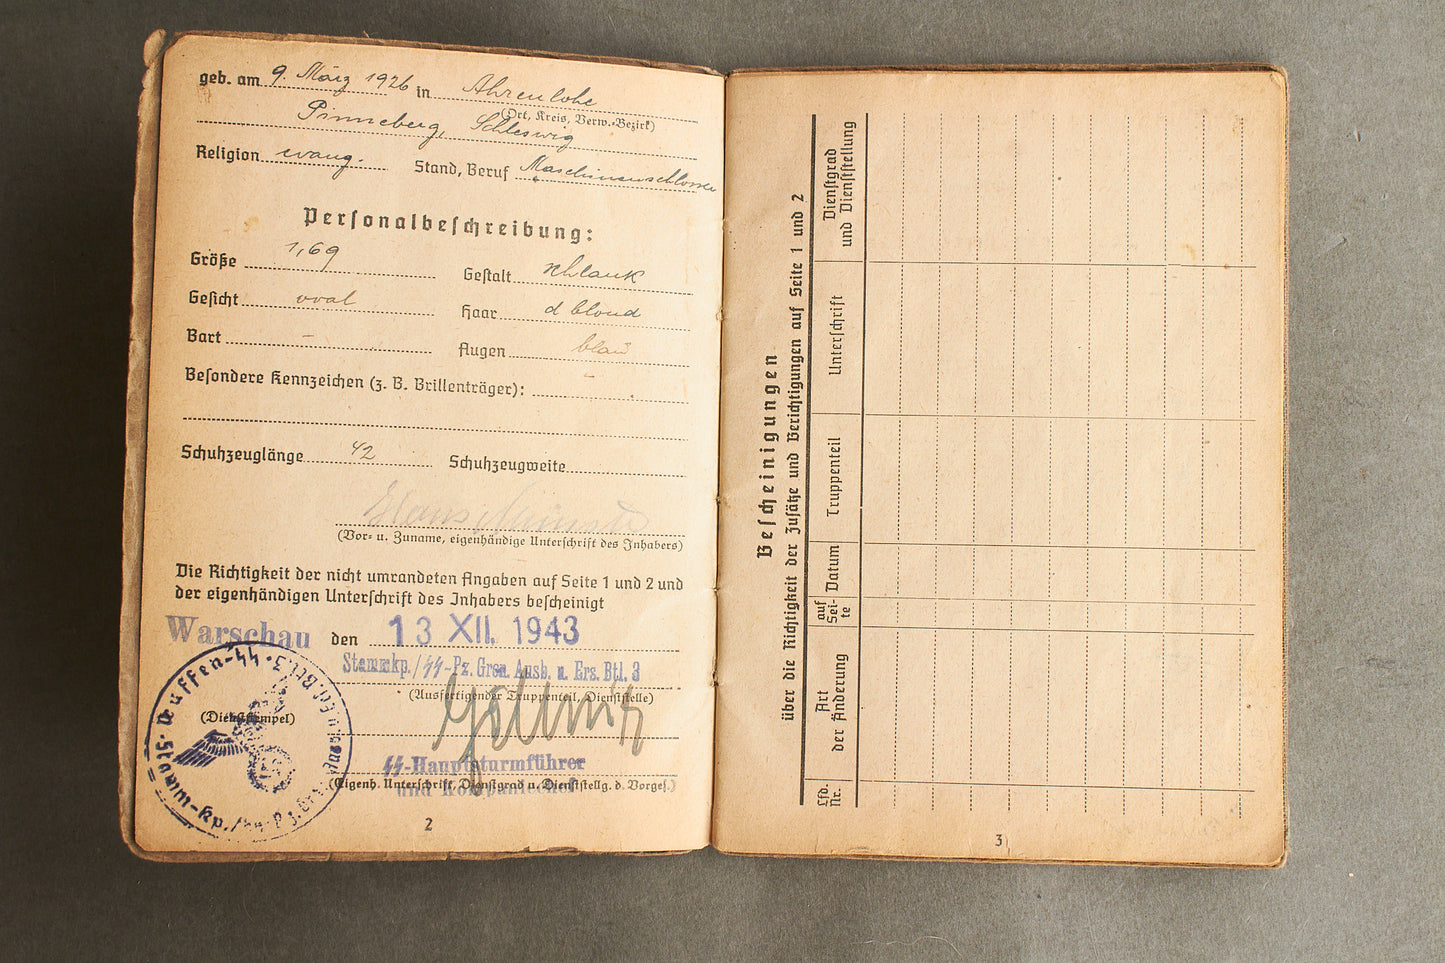 geb. am 9. März 1926 in Ahrenlohe
(Ort, Kreis, Verw.-Bezirk)
Pinneberg, Schleswig
Religion evang. Stand, Beruf Maschinenschlosser
Perſonalbeſchreibung:
Größe 1,69 Geſtalt schlank
Geſicht oval Haar d blond
Bart - Augen blau
Beſondere Kennzeichen (z. B. Brillenträger): -
Schuhzeuglänge 42 Schuhzeugweite
Hans
(Vor- u. Zuname, eigenhändige Unterſchrift des Inhabers)
Die Richtigkeit der nicht umrandeten Angaben auf Seite 1 und 2 und
der eigenhändigen Unterſchrift des Inhabers beſcheinigt
Warschau den 13 XII. 1943
Stammkp./SS-Pz. Gren. Ausb. u. Ers. Btl. 3
(Ausfertigender Truppenteil, Dienſtſtelle)
(Dienſtſtempel)
Waffen-SS
Stamm-Kp./SS-Pz.Gren.
SS-Hauptsturmführer
und Kompaniechef
(Eigenh. Unterſchrift, Dienſtgrad u. Dienſtſtellg. d. Vorgeſ.)
2
Beſcheinigungen
über die Richtigkeit der Zuſätze und Berichtigungen auf Seite 1 und 2
Lfd. Nr.
Art der Änderung
auf Sei-te
Datum
Truppenteil
Unterſchrift
Dienſtgrad und Dienſtſtellung
3